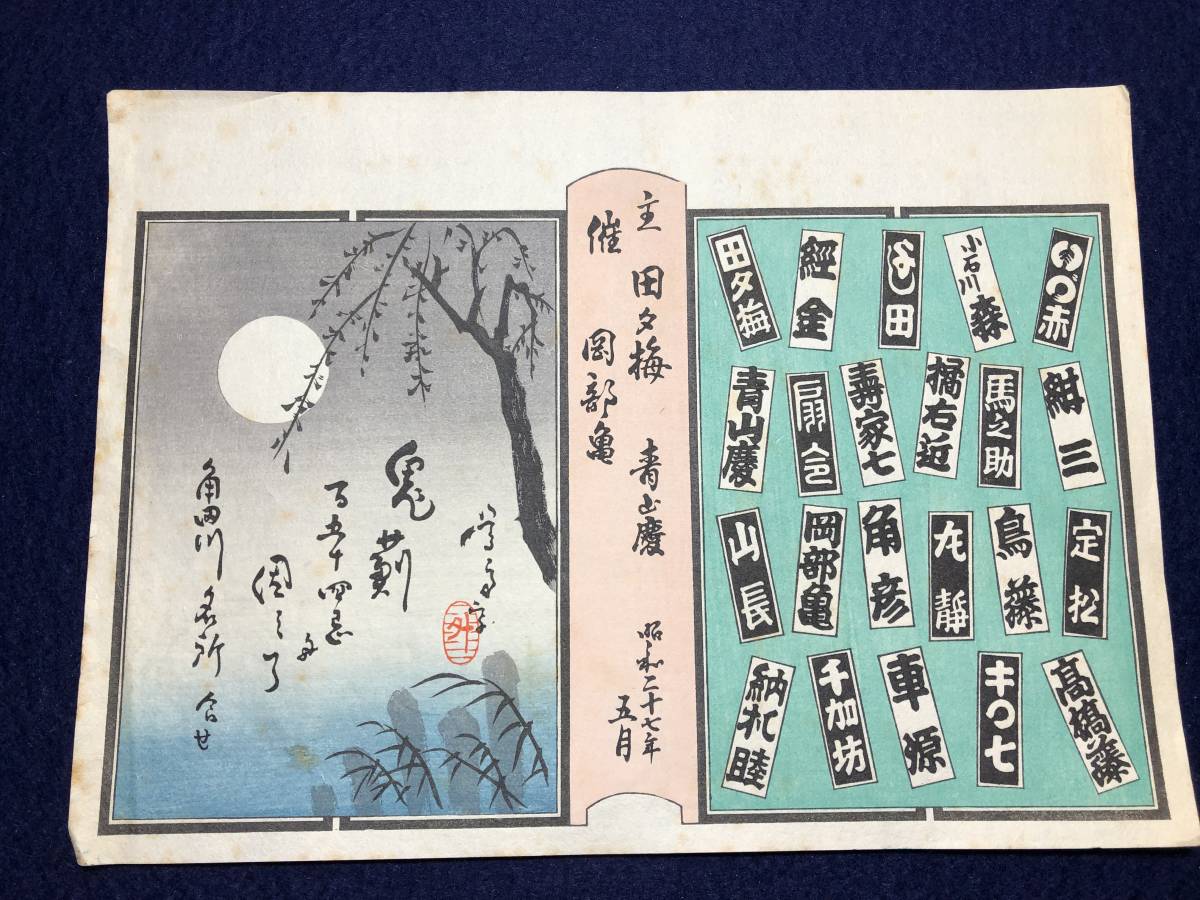 いづ赤
小石川 森
よし田
經金
田夕梅
紺三
馬之助
橘右近
壽家七
扇令
青山慶
定松
鳥藤
丸静
角彦
岡部亀
山長
高橋藤
キの七
車源
千加坊
納札睦
主催
田夕梅 青山慶
岡部亀
昭和二十七年
五月
兎薊
百五十四忌
角田川名所合せ